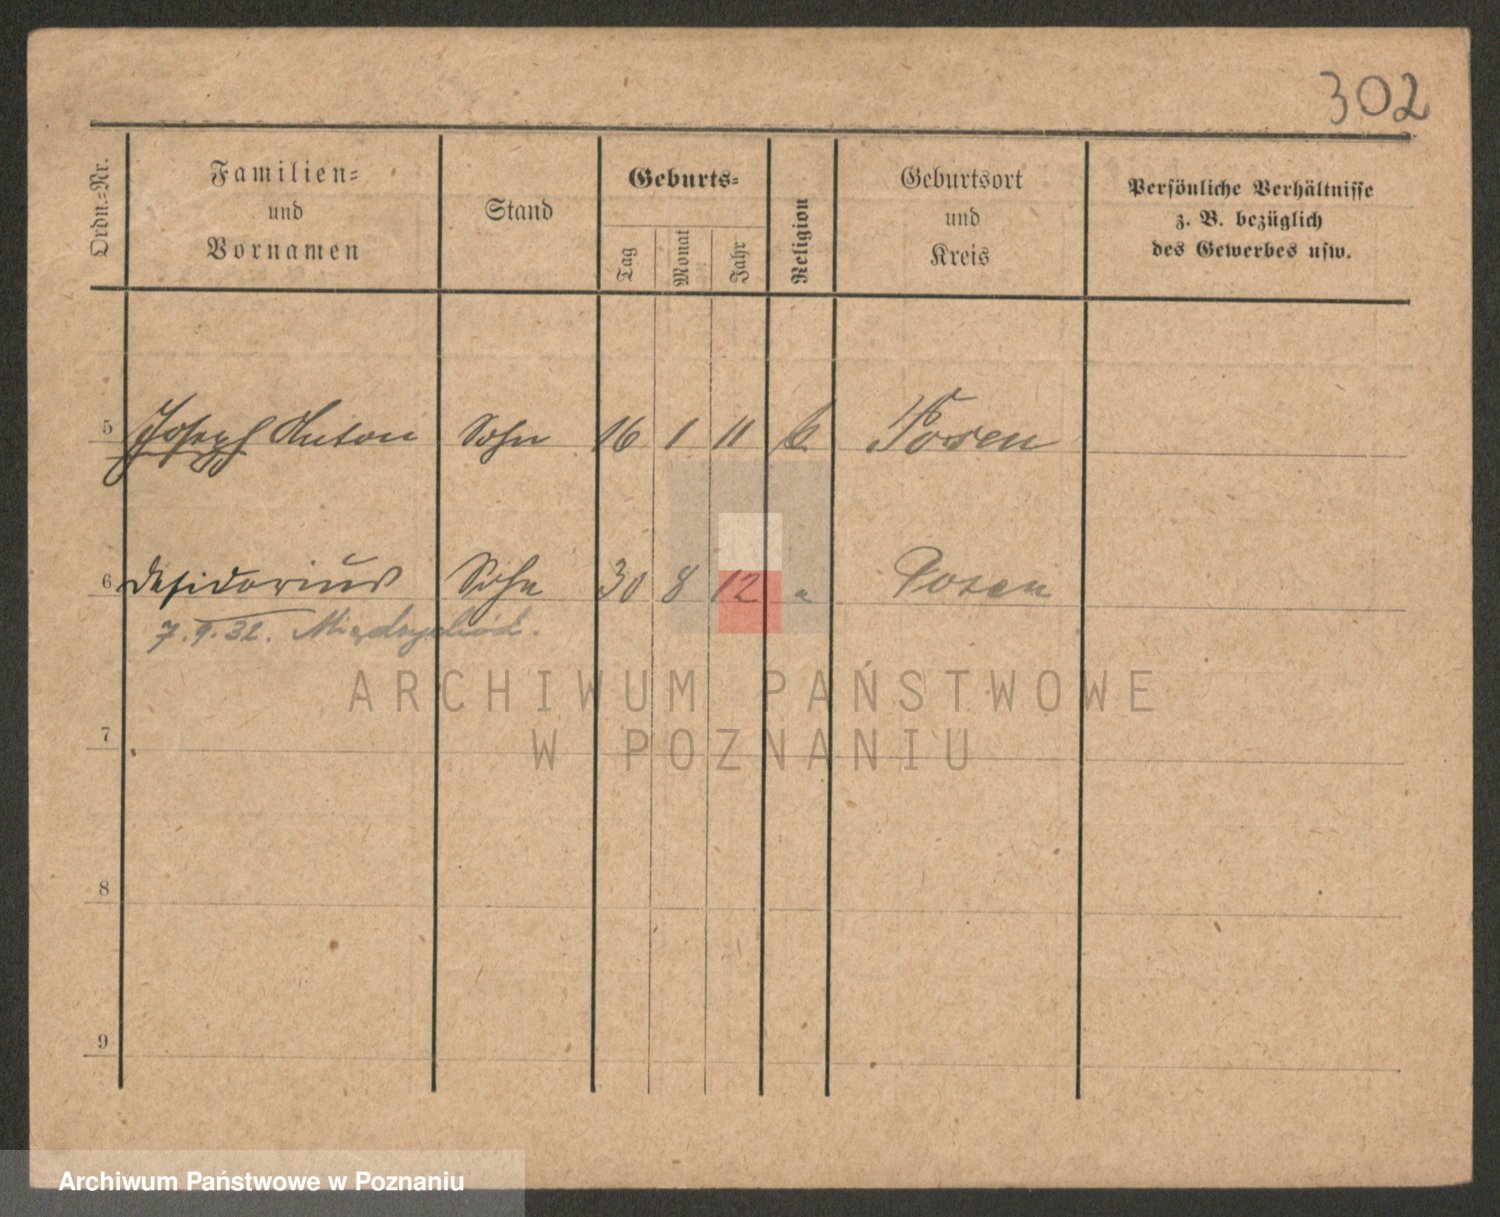 302
Ordn.-Nr.
Familien-
und
Vornamen
Stand
Geburts-
Tag
Monat
Jahr
Religion
Geburtsort
und
Kreis
Persönliche Verhältnisse
z. B. bezüglich
des Gewerbes usw.
5 Joseph Anton Sohn 16 1 11 k Posen
6 Desidorius Sohn 30 8 12 " Posen
7.9.32. Międzychód.
ARCHIWUM PAŃSTWOWE
W POZNANIU
7
8
9
Archiwum Państwowe w Poznaniu